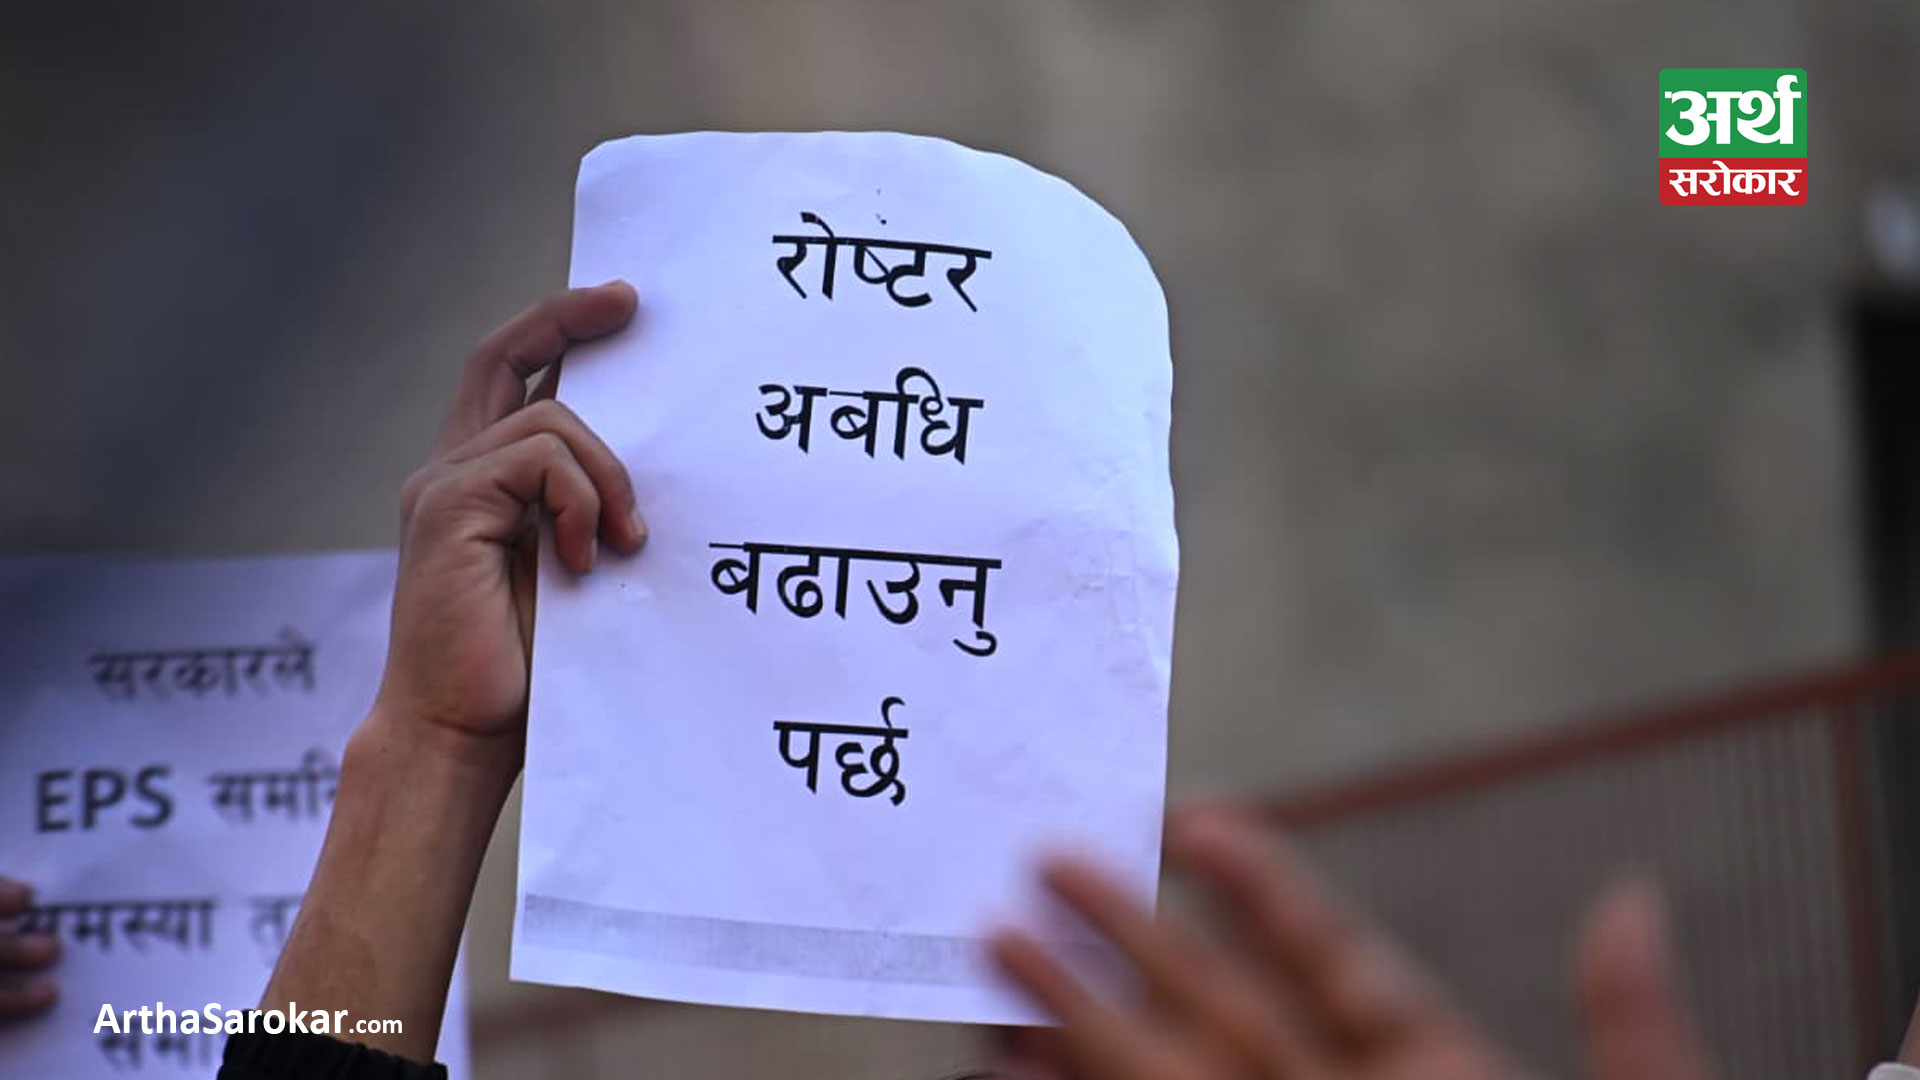 अर्थ
सरोकार
रोष्टर
अबधि
बढाउनु
पर्छ
सरकारले
EPS
समस्या
ArthaSarokar.com